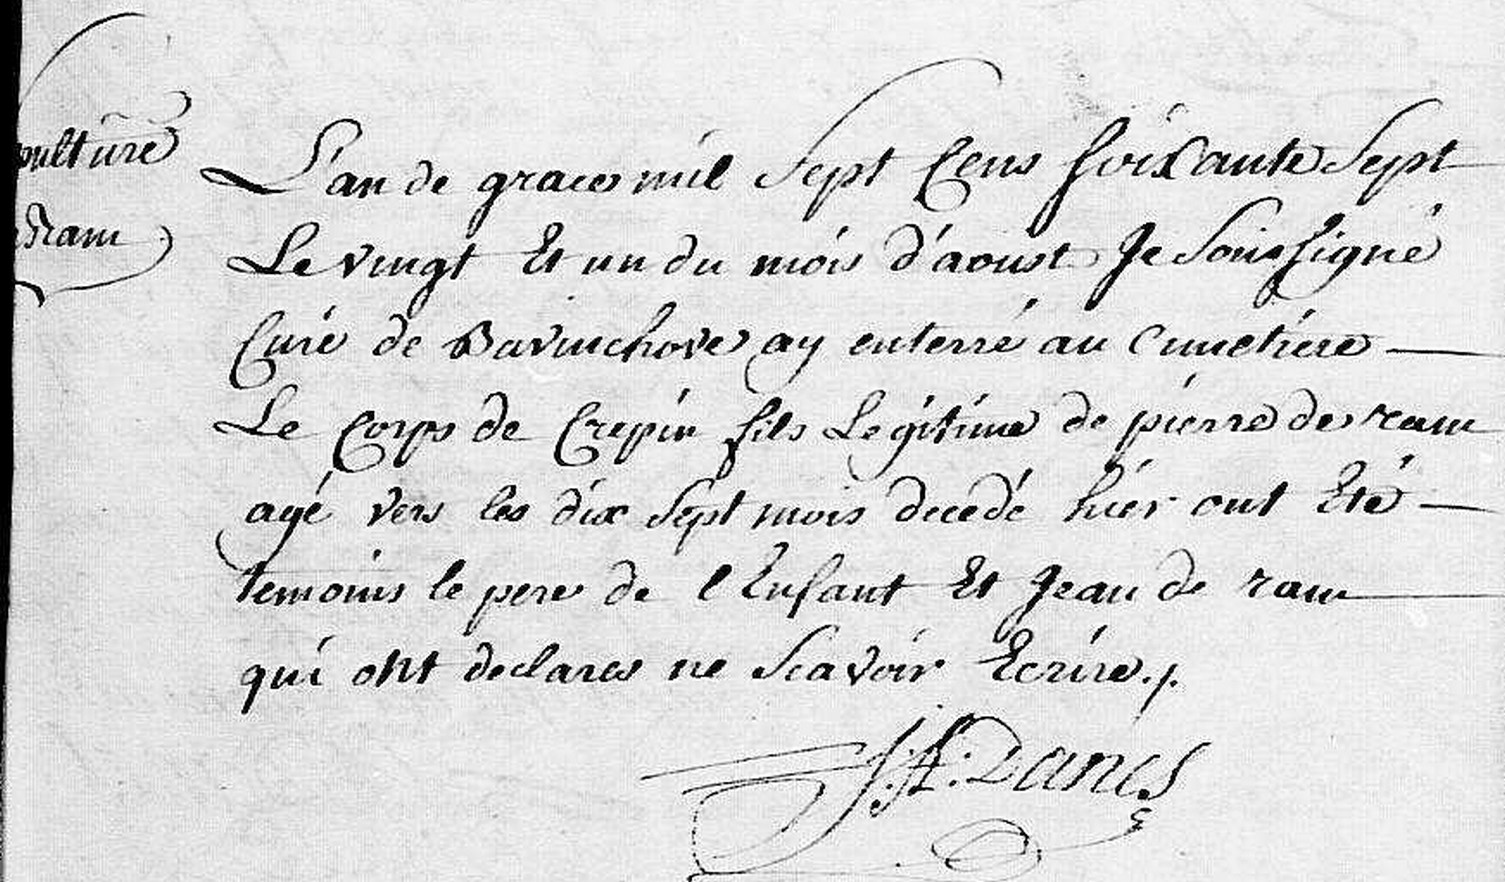 pulture
Ram
L'an de grace mil Sept Cens soixante Sept
Le vingt Et un du mois d'aoust Je Soussigné
Curé de Bavinchove ay enterré au Cimetiere
Le Corps de Crepin fils Legitime de pierre de ram
agé vers les dix Sept mois decedé hier ont Eté
temoins le pere de l'Enfant Et Jean de ram
qui ont declares ne Scavoir Ecrire ./.
Danes